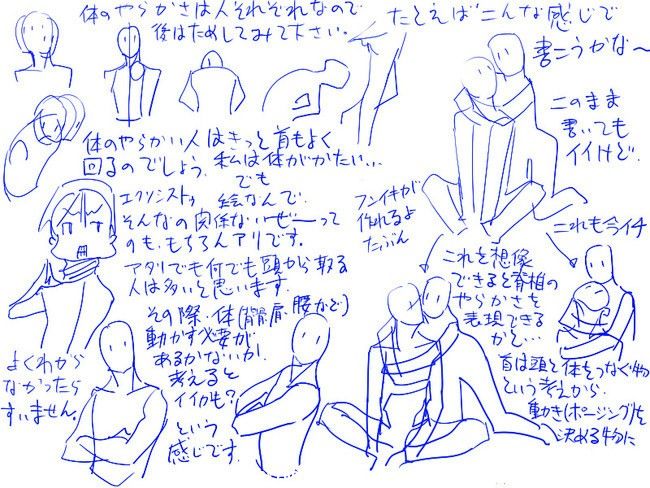 体のやらかさは人それぞれなので
後はためしてみて下さい。
たとえばこんな感じで
書こうかな〜
このまま
書いても
イイけど.
体のやらかい人はきっと首もよく
回るのでしょう. 私は体がかたい...
でも
エクソシスト
絵なんで.
そんなの関係ないぜーって
のも、もちろんアリです。
アタリでも何でも頭から取る
人は多いと思います.
その際、体(肩、腰など)
動かす必要が
あるかないか.
考えると
イイかも?
という
感じです.
よくわから
なかったら
すいません。
フンイキが
作れるよ
たぶん
これも今イチ
これを想像
できると首の
やらかさを
表現できる
かと...
首は頭と体をつなぐ物
という考えから.
動き(ポージング)を
決める物に